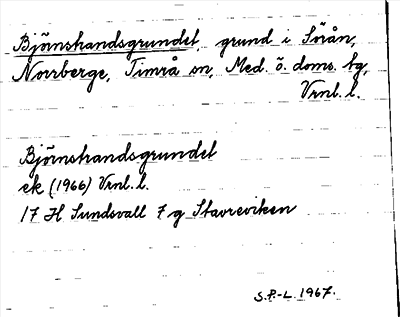 Björnstrandsgrundet, grund i Sörån,
Norrberge, Timrå sn, Med. ö. doms. tg,
Vrnl. l.
Björnstrandsgrundet
ek (1966) Vrnl. l.
17 H Sundsvall 7 g Stavreviken
S.P.-L. 1967.